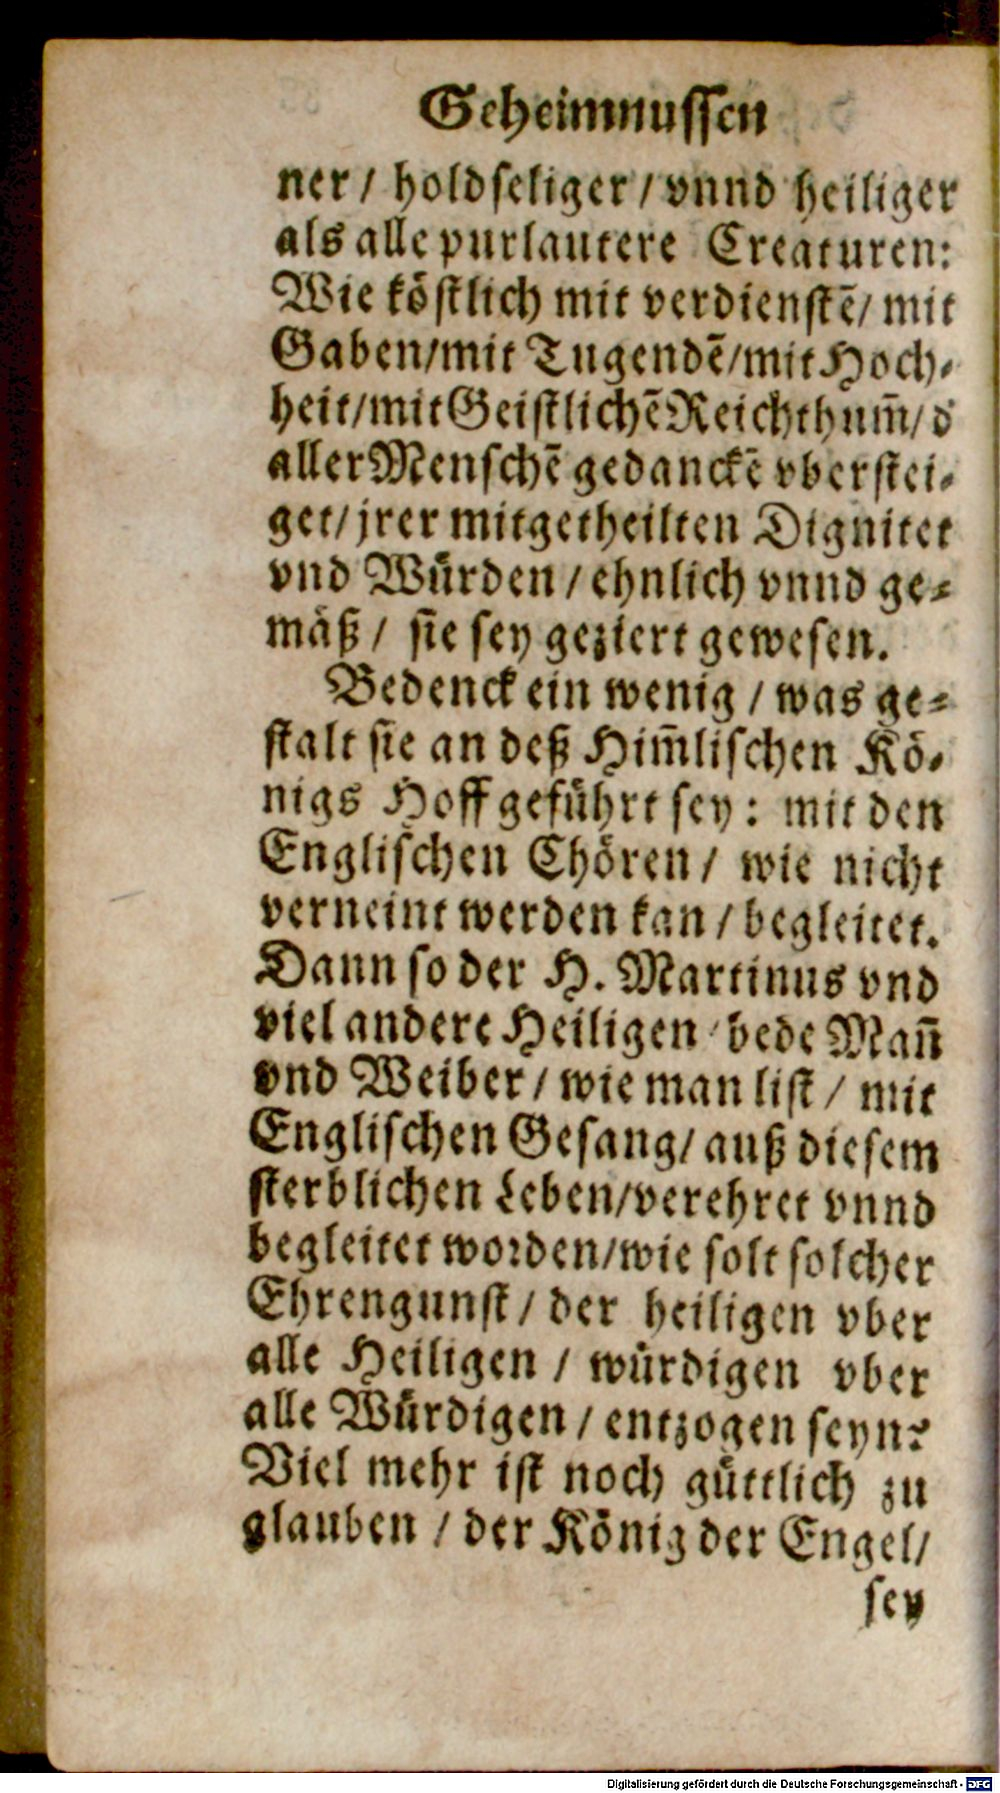 Geheimnussen
ner / holdseliger / vnnd heiliger
als alle purlautere Creaturen:
Wie köstlich mit verdienstē/ mit
Gaben/mit Tugendē/mit Hoch-
heit/mit Geistlichē Reichthum̄/ d
aller Menschē gedanckē vberstei-
get/ jrer mitgetheilten Dignitet
vnd Würden / ehnlich vnnd ge-
mäß / sie sey geziert gewesen.
Bedenck ein wenig / was ge-
stalt sie an deß Him̄lischen Kö-
nigs Hoff geführt sey : mit den
Englischen Chören / wie nicht
verneint werden kan / begleitet.
Dann so der H. Martinus vnd
viel andere Heiligen / bede Mañ
vnd Weiber / wie man list / mit
Englischen Gesang/ auß diesem
sterblichen Leben/verehret vnnd
begleitet worden/wie solt solcher
Ehrengunst / der heiligen vber
alle Heiligen / würdigen vber
alle Würdigen / entzogen seyn?
Viel mehr ist noch güttlich zu
glauben / der König der Engel/
sey
Digitalisierung gefördert durch die Deutsche Forschungsgemeinschaft - DFG